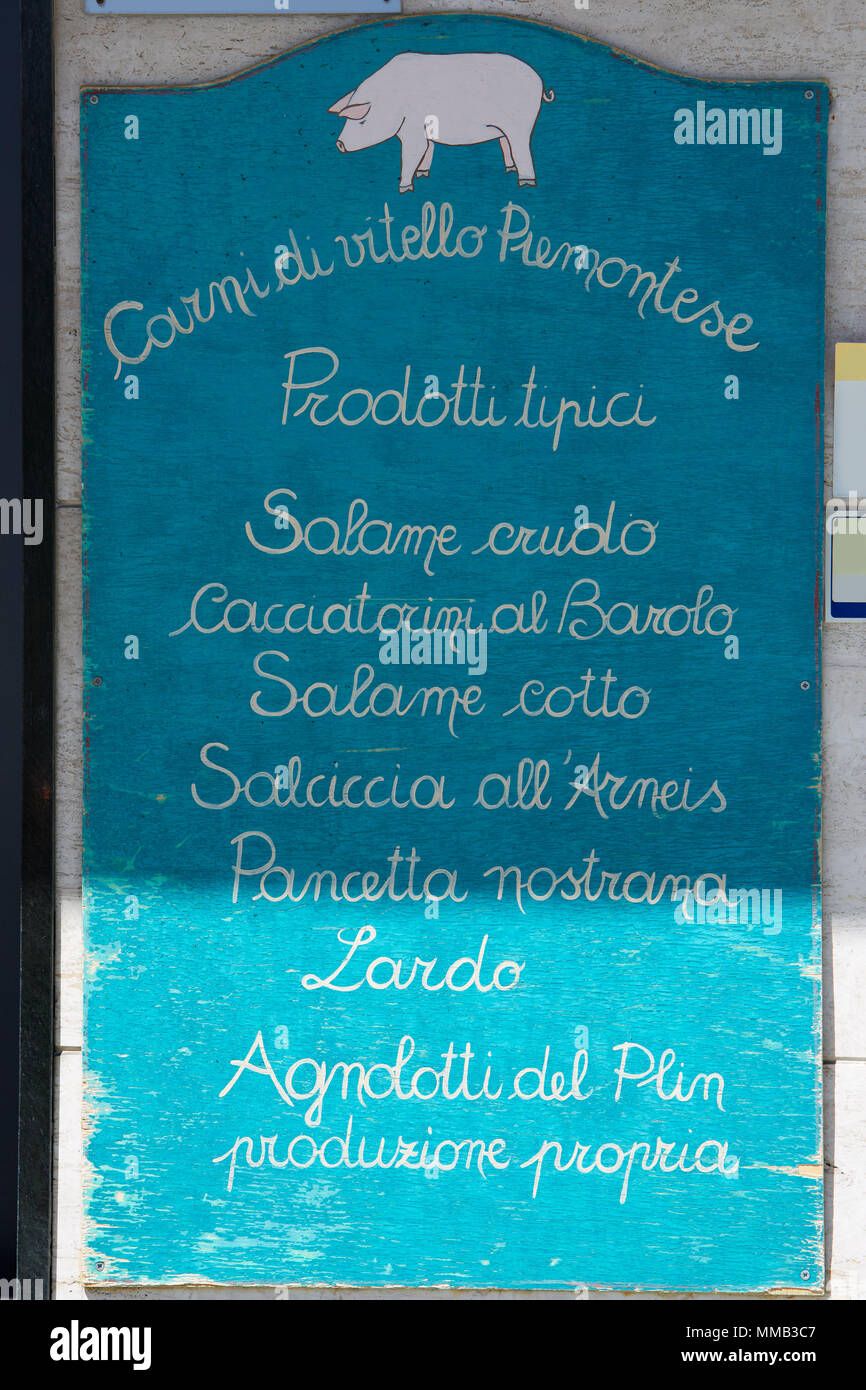 Carni di vitello Piemontese
Prodotti tipici
Salame crudo
Cacciatorini al Barolo
Salame cotto
Salciccia all'Arneis
Pancetta nostrana
Lardo
Agnolotti del Plin
produzione propria
alamy
Image ID: MMB3C7
www.alamy.com